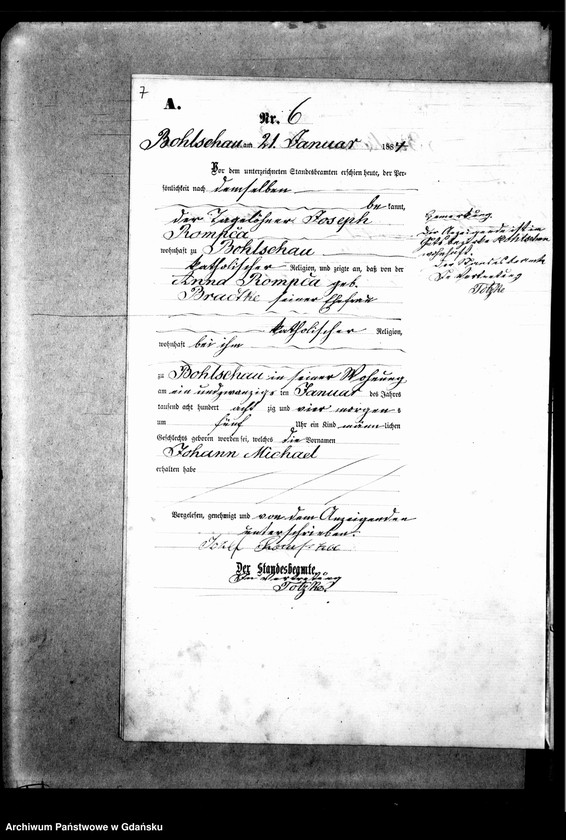 7
A.
Nr. 6
Bohlschau am 21. Januar 1884
Vor dem unterzeichneten Standesbeamten erschien heute, der Per-
sönlichkeit nach demselben
bekannt,
der Tagelöhner Joseph
Rompča
wohnhaft zu Bohlschau
katholischer Religion, und zeigte an, daß von der
Anna Rompča geb.
seiner Ehefrau
katholischer Religion,
wohnhaft bei ihm
zu Bohlschau in seiner Wohnung
am ein und zwanzigsten Januar des Jahres
tausend acht hundert acht zig und vier morgens
um fünf Uhr ein Kind männlichen
Geschlechts geboren worden sei, welches die Vornamen
Johann Michael
erhalten habe
Vorgelesen, genehmigt und von dem Anzeigenden
unterschrieben.
Josef
Der Standesbeamte.
In Vertretung
Totzke.
Bemerkung.
Der Anzeigende ist im
Gutsbezirke
wohnhaft.
Der Standesbeamte
In Vertretung
Totzke
Archiwum Państwowe w Gdańsku